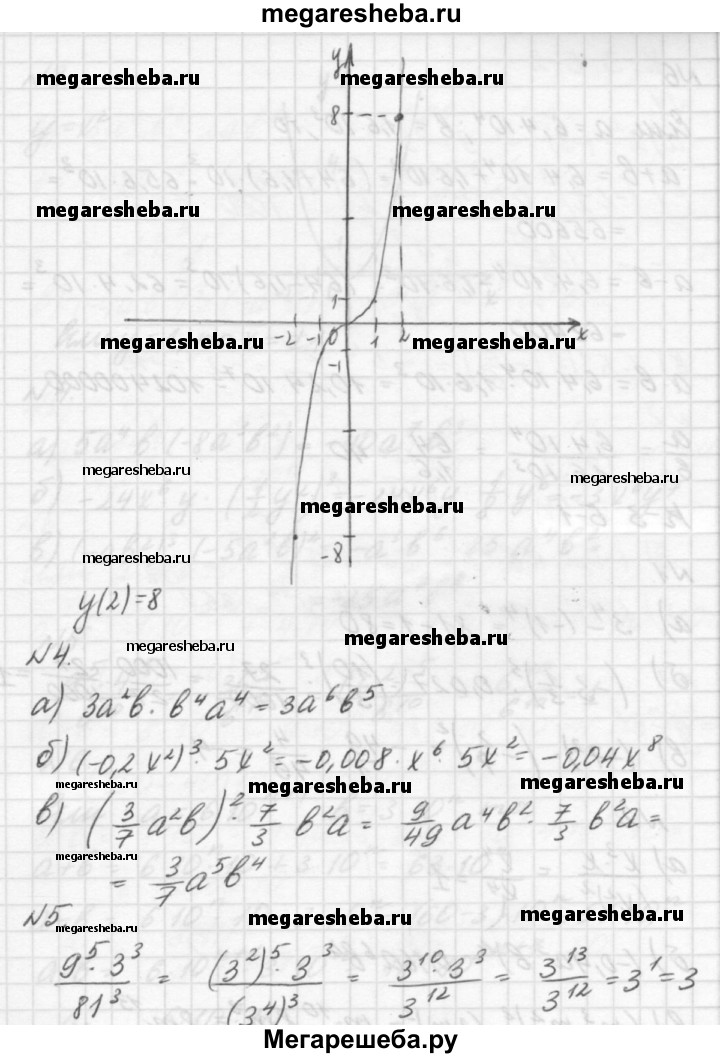 megaresheba.ru
y
megaresheba.ru megaresheba.ru
8
megaresheba.ru megaresheba.ru
1
-2 -1 0 1 2 x
megaresheba.ru megaresheba.ru
-1
megaresheba.ru megaresheba.ru
megaresheba.ru
-8
megaresheba.ru
y(2)=8
megaresheba.ru megaresheba.ru
№4.
а) 3a²b · b⁴a⁴ = 3a⁶b⁵
б) (-0,2x²)³ · 5x² = -0,008 · x⁶ · 5x² = -0,04x⁸
megaresheba.ru megaresheba.ru megaresheba.ru
в) (3/7 a²b)² · 7/3 b²a = 9/49 a⁴b² · 7/3 b²a =
= 3/7 a⁵b⁴
№5
megaresheba.ru megaresheba.ru megaresheba.ru
9⁵ · 3³ / 81³ = (3²)⁵ · 3³ / (3⁴)³ = 3¹⁰ · 3³ / 3¹² = 3¹³ / 3¹² = 3¹ = 3
Мегарешеба.ру